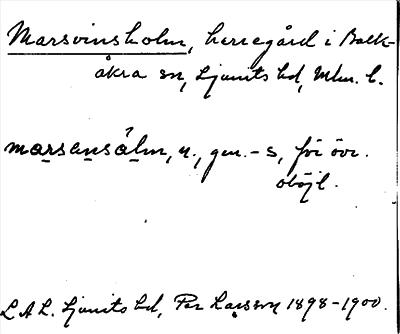 Marsvinsholm, herregård i Balk-
åkra sn, Ljunits hd, Mlm. l.
marsənsålm, n., gen. -s, för övr.
oböjl.
L A L. Ljunits hd, Per Larsson 1898-1900.